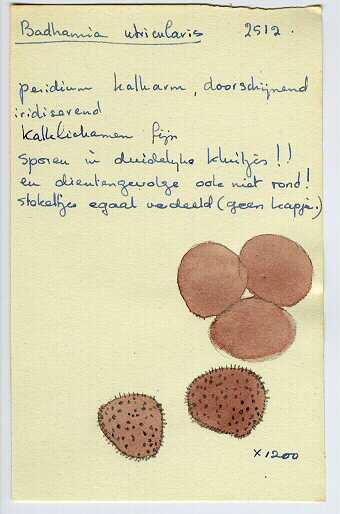 Badhamia utricularis 2512.
peridium kalkarm, doorschijnend
iridiserend
kalklichamen fijn
sporen in duidelijke kluitjes!!
en dientengevolge ook niet rond!
stekeltjes egaal verdeeld (geen kapje.)
x1200